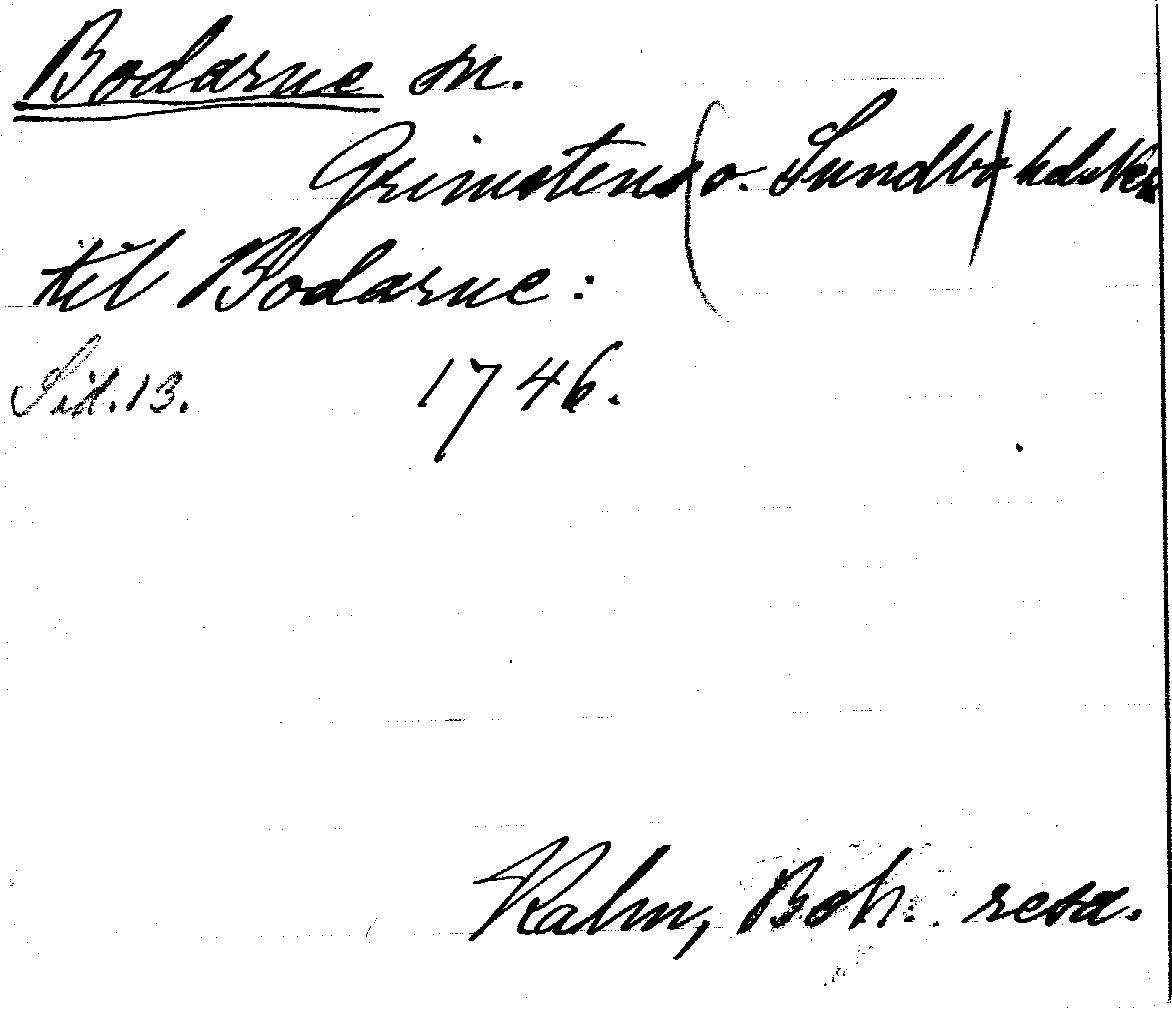 Bodarne sn.
Grimstens (o. Sundbo)
til Bodarne:
Sid. 13. 1746.
Kalm, Boh. resa.